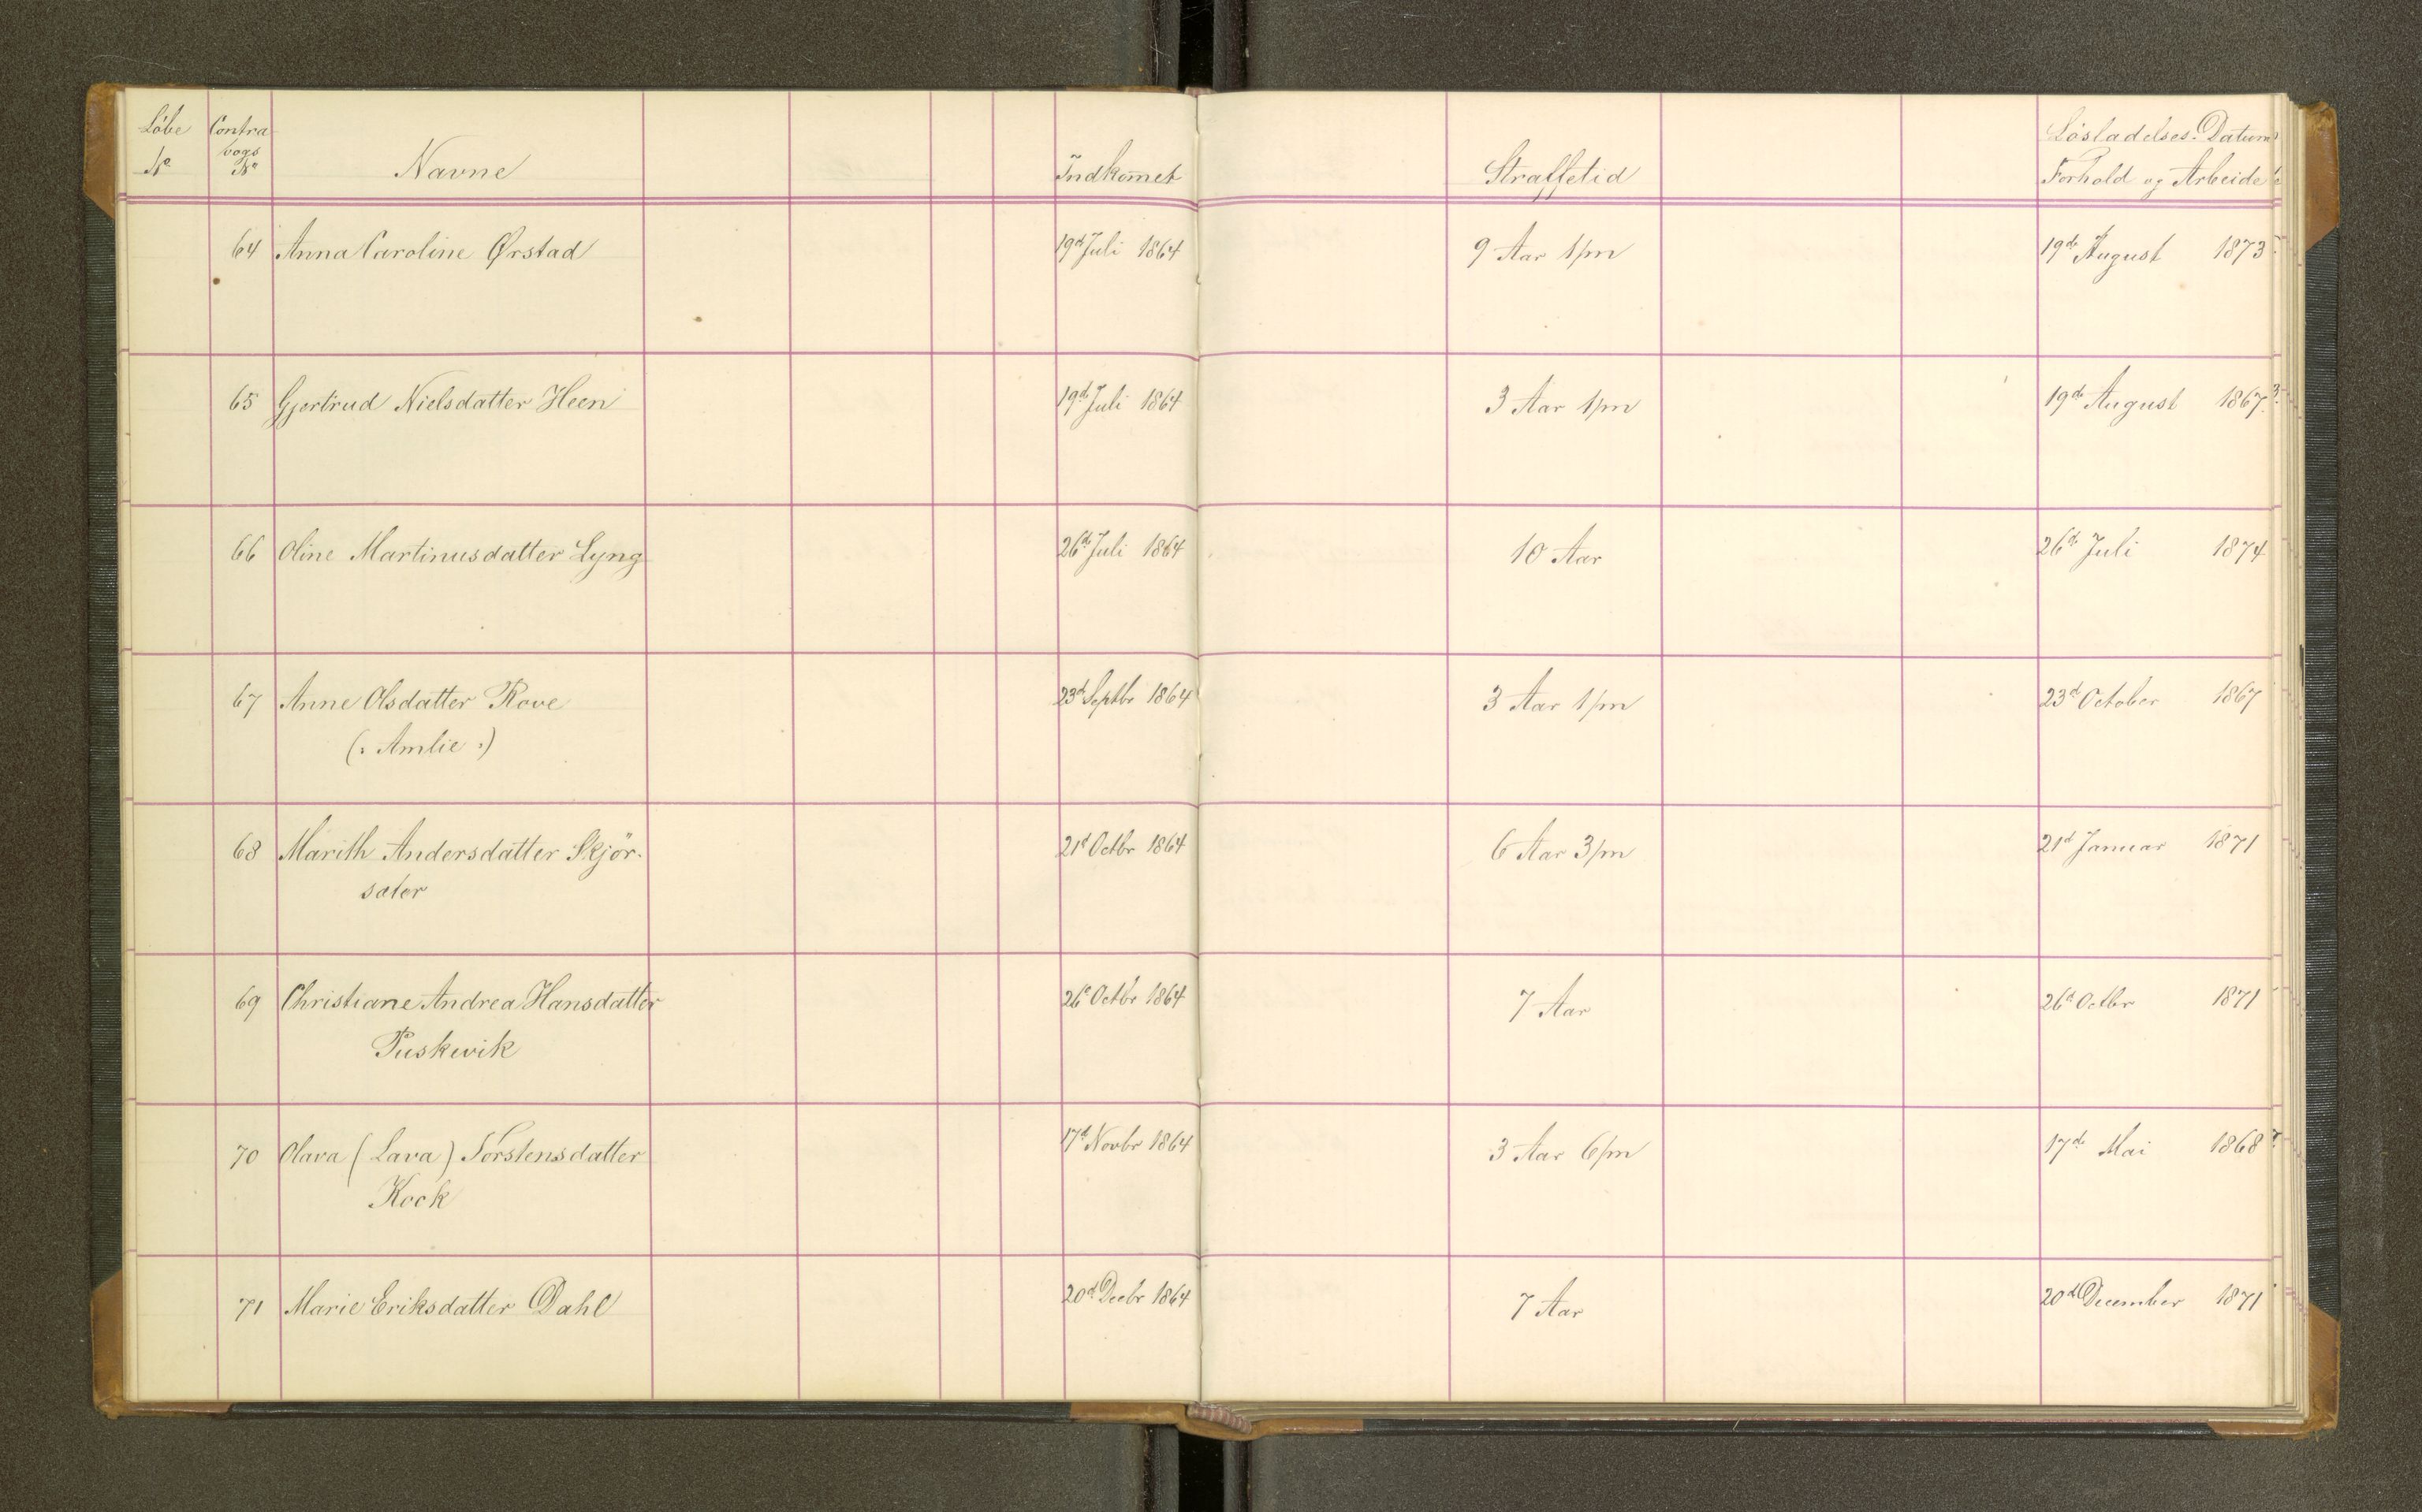 Löbe Contra
bogs
No No Navne Indkom̄et Straffetid Lösladelses-Datum
Forhold og Arbeide
64 Anna Caroline Ørstad 19de Juli 1864 9 Aar 1/m 19de August 1873
65 Gjertrud Nielsdatter Heen 19de Juli 1864 3 Aar 1/m 19de August 1867.
66 Oline Martinusdatter Lyng 26de Juli 1864 10 Aar 26de Juli 1874
67 Anne Olsdatter Rove 23d Septbr 1864 3 Aar 1/m 23d October 1867
(: Amlie :)
68 Marith Andersdatter Skjör- 21d Octbr 1864 6 Aar 3/m 21d Januar 1871
sæter
69 Christiane Andrea Hansdatter 26d Octbr 1864 7 Aar 26d Octbr 1871
Puskevik
70 Olava (Lava) Torstensdatter 17d Novbr 1864 3 Aar 6/m 17de Mai 1868
Kock
71 Marie Eriksdatter Dahl 20d Decbr 1864 7 Aar 20d December 1871